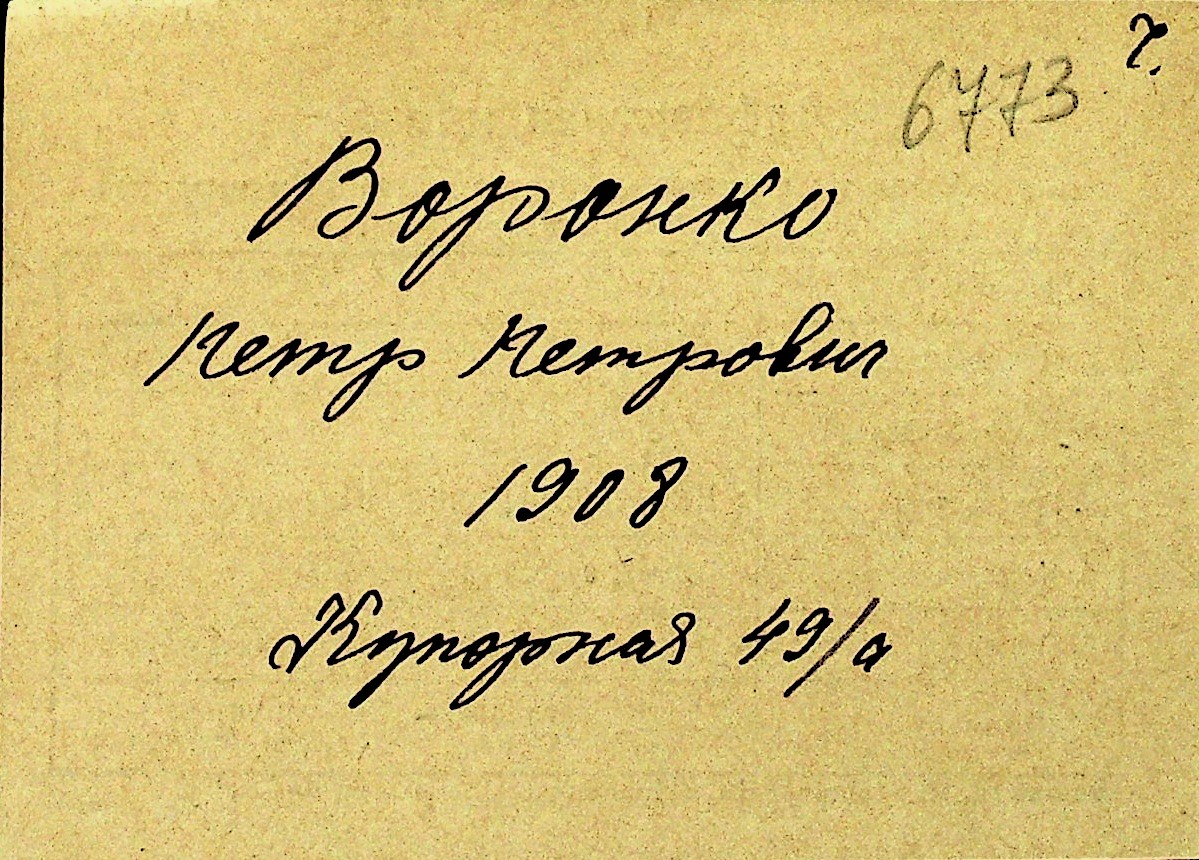 6773 ч.
Воронко
Петр Петрович
1908
Купорная 49/а